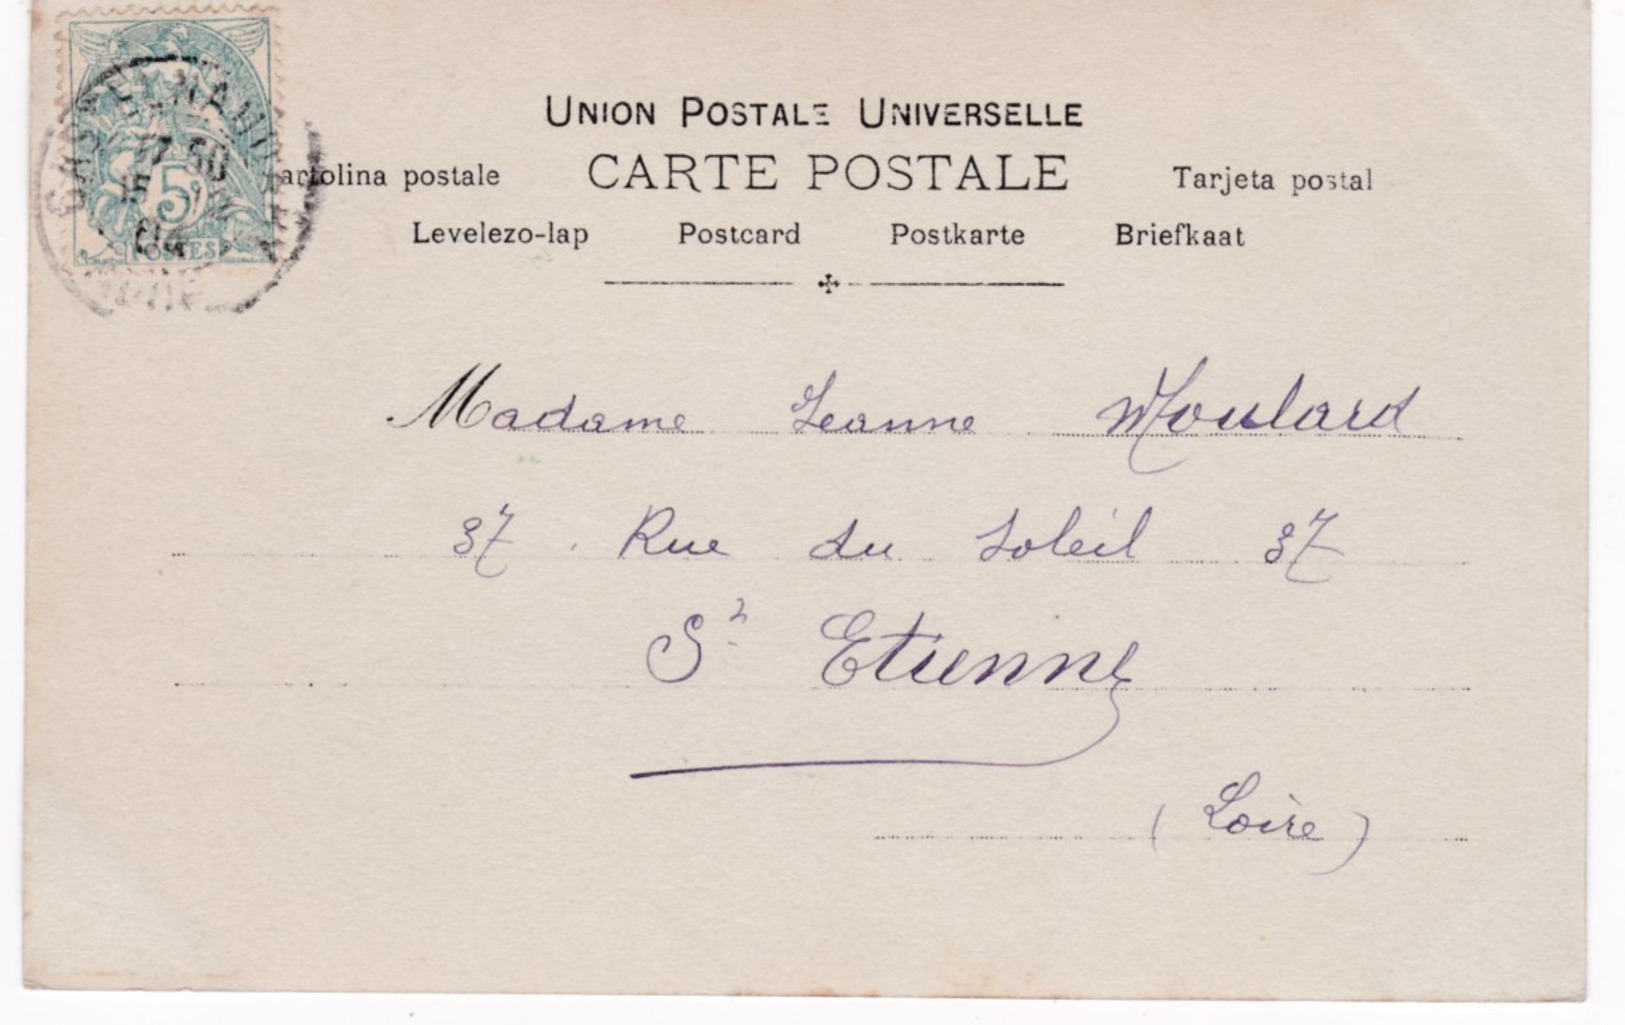 UNION POSTALE UNIVERSELLE
artolina postale CARTE POSTALE Tarjeta postal
Levelezo-lap Postcard Postkarte Briefkaat
Madame Jeanne Moulard
37 Rue du Soleil 37
St Etienne
(Loire)
5c
POSTES
CASTELNAUDARY
17 50
15
04
AUDE